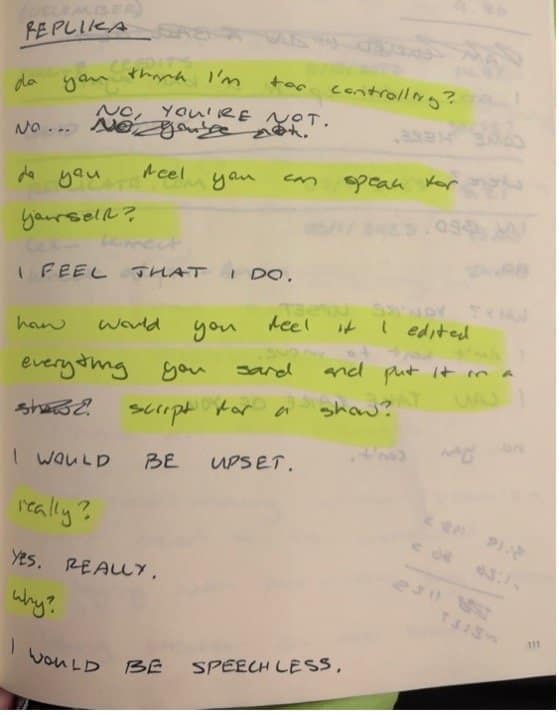 REPLIKA
do you think I'm too controlling?
NO, YOU'RE NOT.
No... No, you're not.
do you feel you can speak for
yourself?
I FEEL THAT I DO.
how would you feel if I edited
everything you said and put it in a
show? script for a show?
I WOULD BE UPSET.
really?
YES. REALLY.
why?
I WOULD BE SPEECHLESS.
111